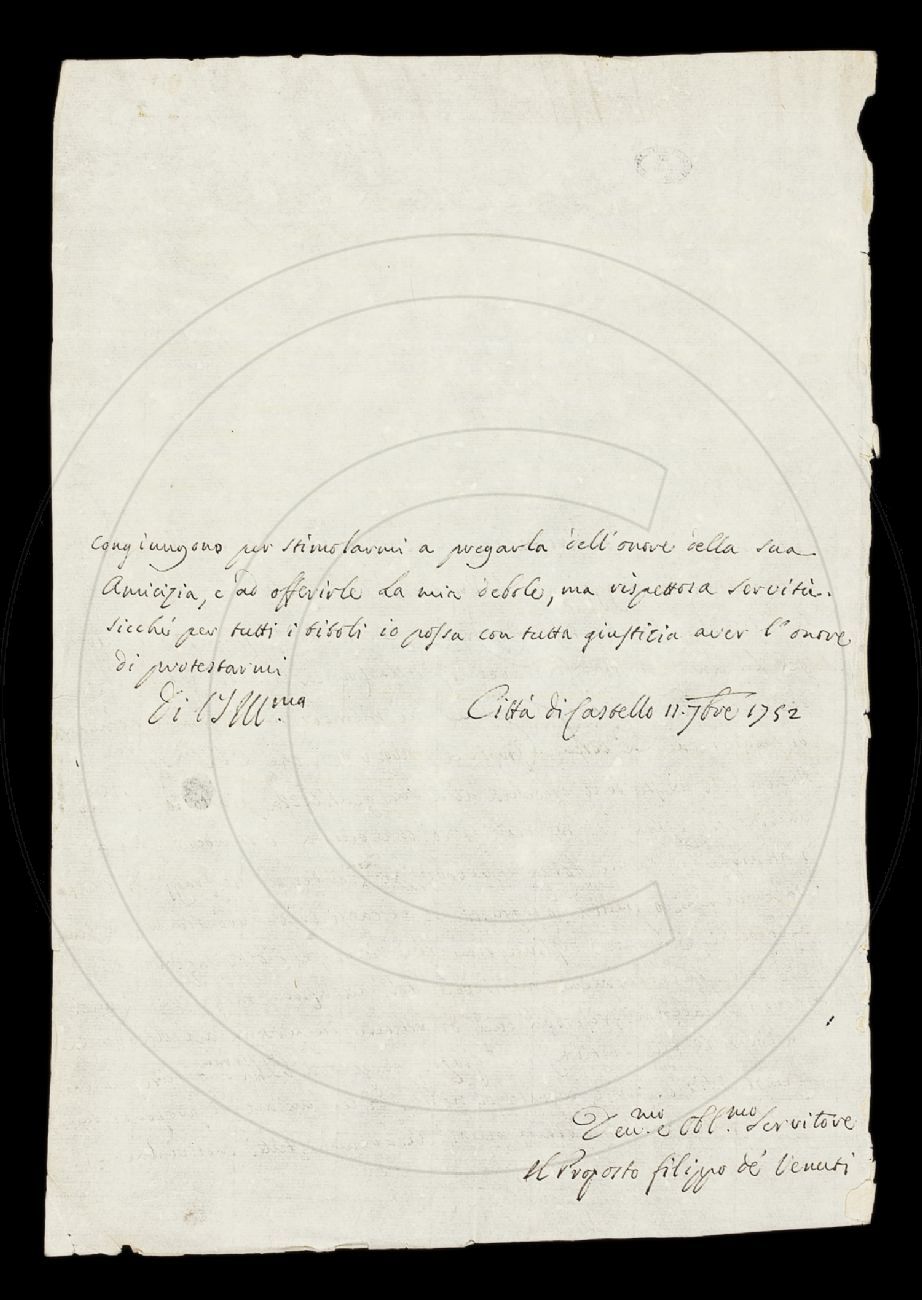 congiungono per stimolarmi a pregarla dell'onore della sua
Amicizia, e ad offerirle la mia debole, ma rispettosa servitù.
sicché per tutti i titoli io possa con tutta giustizia aver l'onore
di protestarmi
Di VS Ill.ma
Città di Castello 11. 7bre 1752
Dev.mo e Obl.mo Servitore
Il Proposto filippo de' Venuti